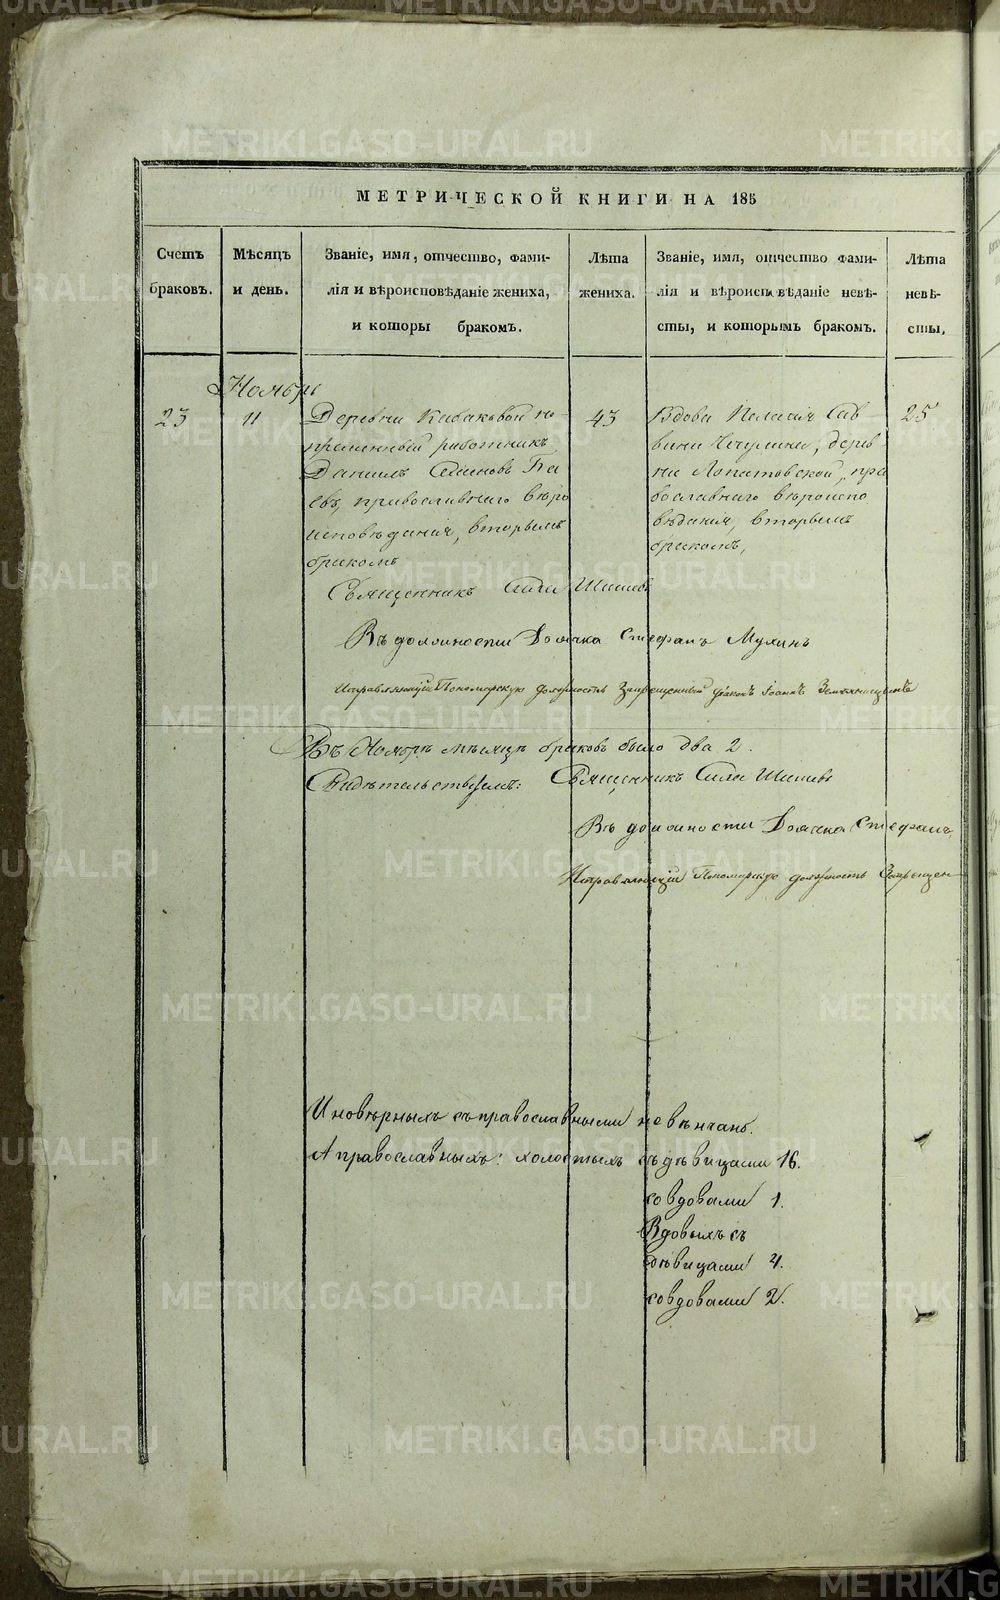 МЕТРИЧЕСКОЙ КНИГИ НА 185
Счетъ браковъ.
Мѣсяцъ и день.
Званіе, имя, отчество, фами-
лія и вѣроисповѣданіе жениха,
и которы бракомъ.
Лѣта жениха.
Званіе, имя, отчество фами-
лія и вѣроисповѣданіе невѣ-
сты, и которымъ бракомъ.
Лѣта невѣ-
сты.
Ноябрь
23
11
Деревни Кабаковой не-
премѣнный работникъ
Данилъ Семеновъ Ба
евъ, православнаго вѣро
исповѣданія, вторымъ
бракомъ
43
Вдова Пелагія Сав
вина, дерев
ни Лопатовской, пра
вославнаго вѣроиспо
вѣданія, вторымъ
бракомъ,
25
Священникъ Сила Шишевъ
Въ должности Дьячка Стефанъ Мулинъ
Исправляющій Пономарскую должность Запрещенный діаконъ Іоаннъ Земляницынъ
Въ Ноябрѣ мѣсяцѣ браковъ было два 2.
Свидѣтельствуемъ: Священникъ Сила Шишевъ
Въ должности Дьячка Стефанъ
Исправляющій Пономарскую должность Запрещен
Иновѣрныхъ съ православными не вѣнчано.
А православныхъ: холостыхъ съ дѣвицами 16.
со вдовами 1.
Вдовыхъ съ
дѣвицами 4.
со вдовами 2.
METRIKI.GASO-URAL.RU